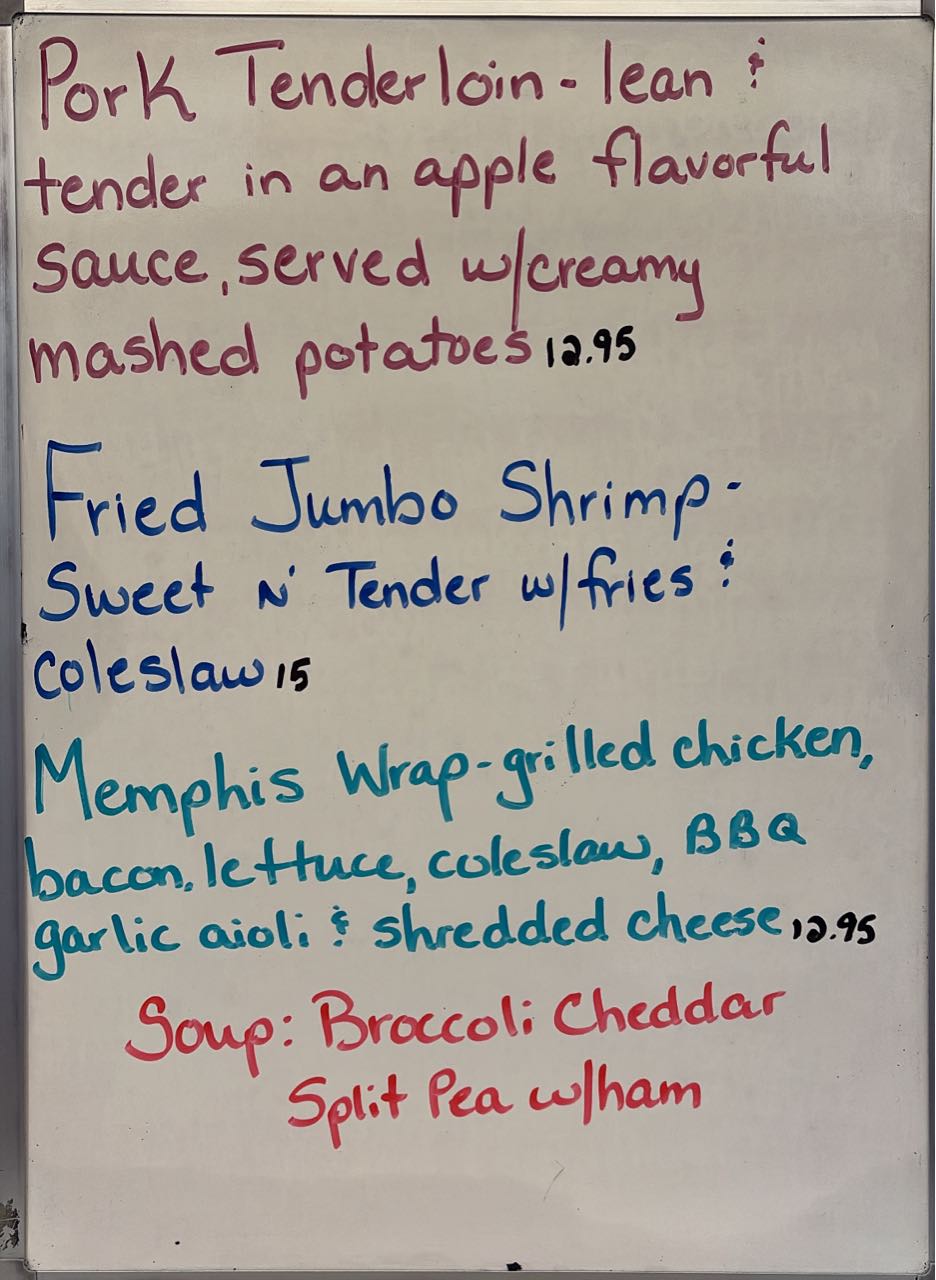 Pork Tenderloin - lean &
tender in an apple flavorful
sauce, served w/creamy
mashed potatoes 12.95
Fried Jumbo Shrimp -
Sweet N' Tender w/fries &
coleslaw 15
Memphis Wrap - grilled chicken,
bacon, lettuce, coleslaw, BBQ
garlic aioli & shredded cheese 12.95
Soup: Broccoli Cheddar
Split Pea w/ham